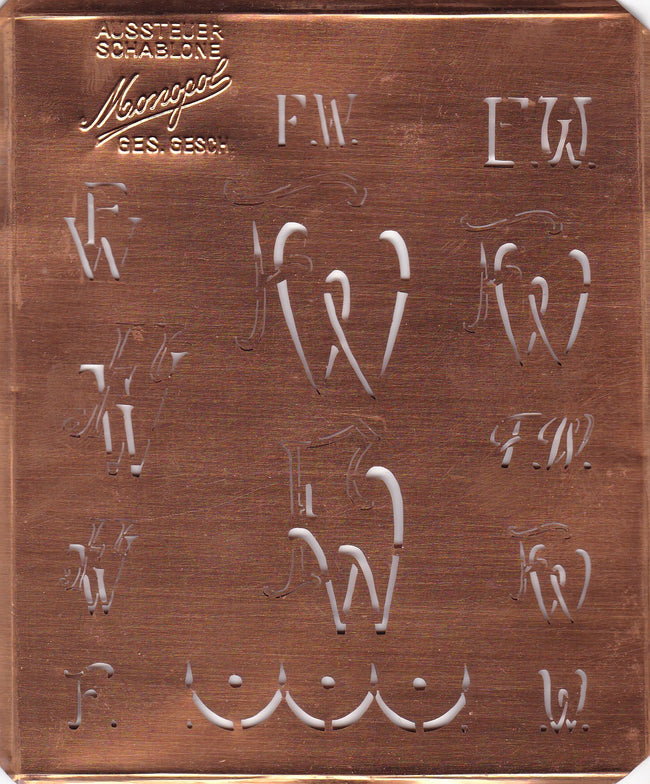 AUSSTEUER
SCHABLONE
Monopol
GES. GESCH.
F.W.
F.W.
FW
FW
FW
FW
F.W.
FW
FW
FW
F.
W.